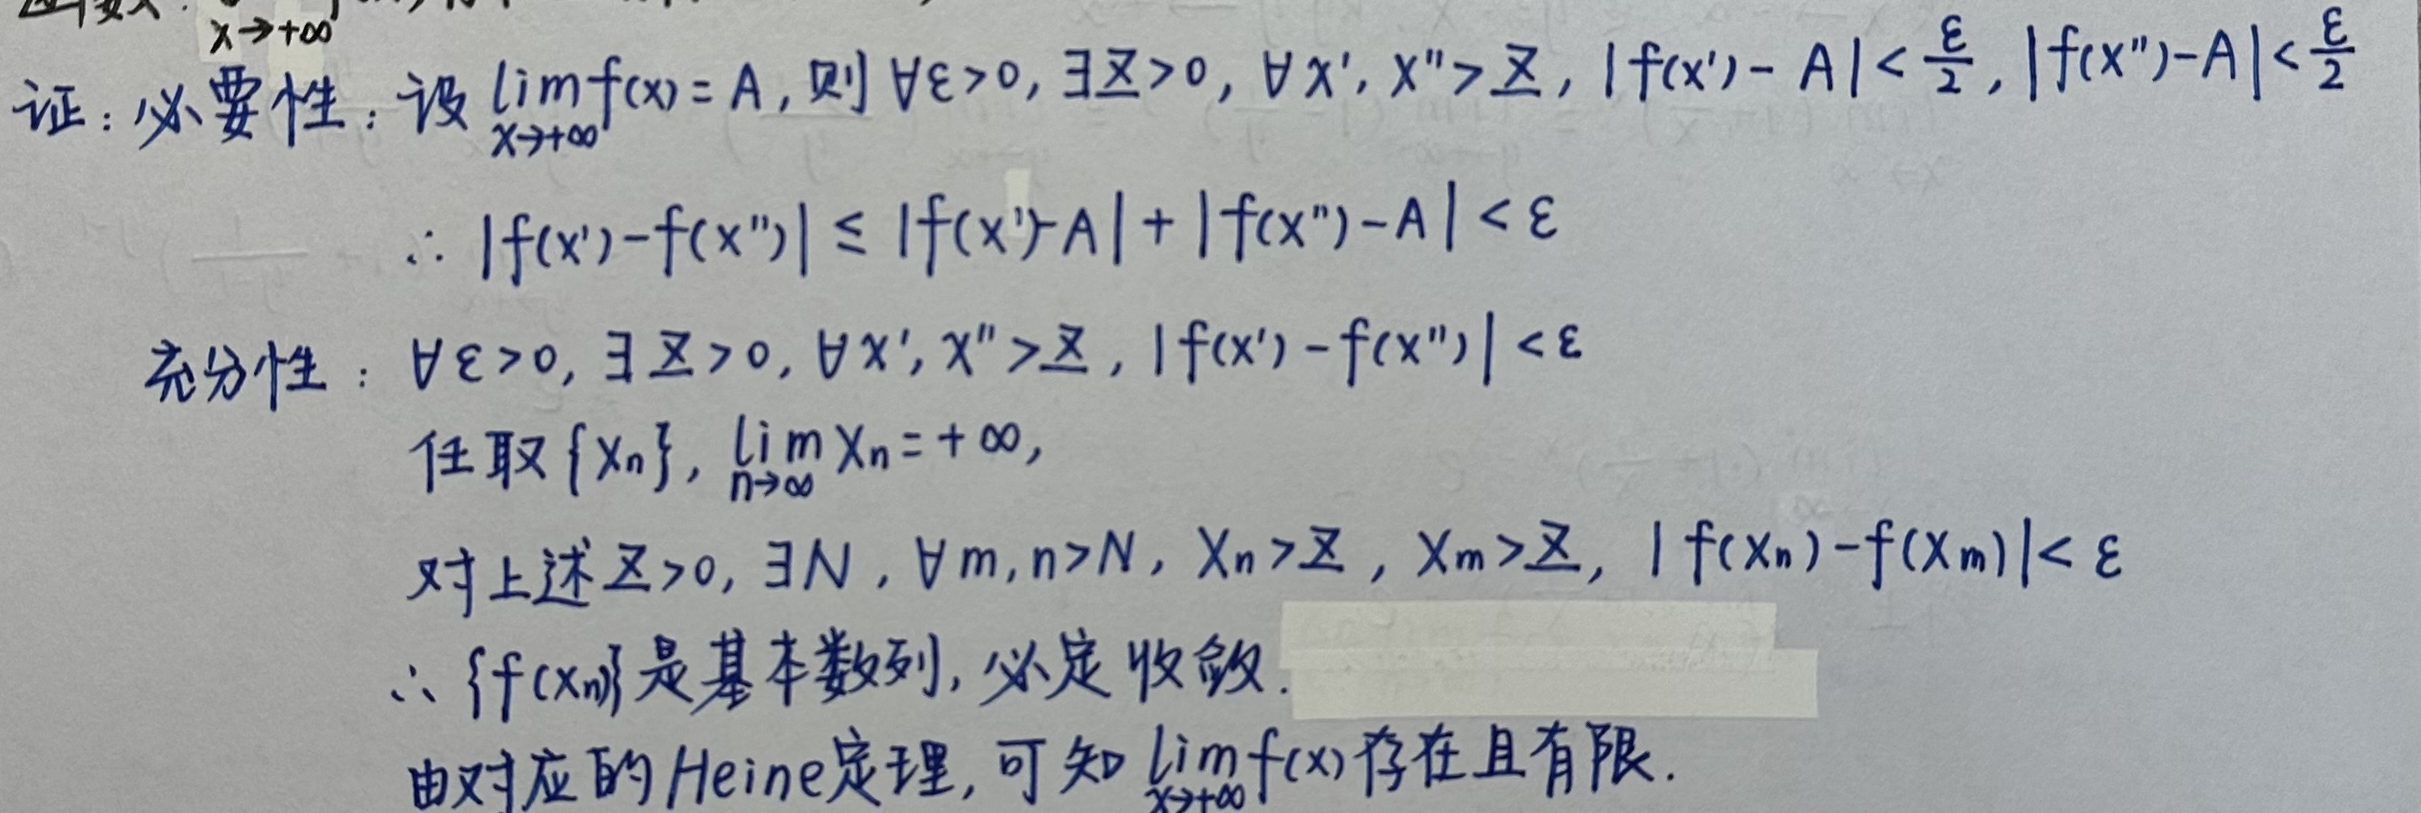 x→+∞
证：必要性：设 lim_{x→+∞} f(x) = A, 则 ∀ε>0, ∃X>0, ∀x', x">X, |f(x') - A| < ε/2, |f(x")-A| < ε/2
∴ |f(x')-f(x")| ≤ |f(x')-A| + |f(x")-A| < ε
充分性：∀ε>0, ∃X>0, ∀x', x">X, |f(x') - f(x")| < ε
任取{xn}, lim_{n→∞} xn = +∞,
对上述X>0, ∃N, ∀m,n>N, xn>X, xm>X, |f(xn)-f(xm)| < ε
∴ {f(xn)}是基本数列, 必定收敛.
由对应的Heine定理, 可知 lim_{x→+∞} f(x) 存在且有限.